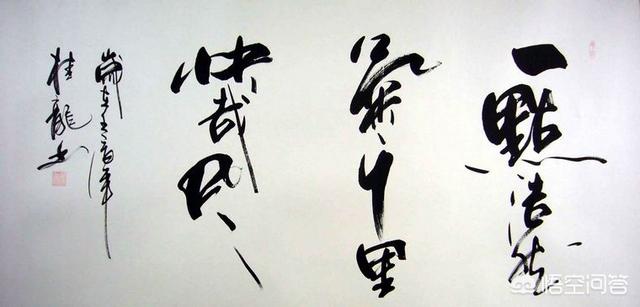 一點浩然
氣千里
快哉風
歲在
桂龍書
悟空问答